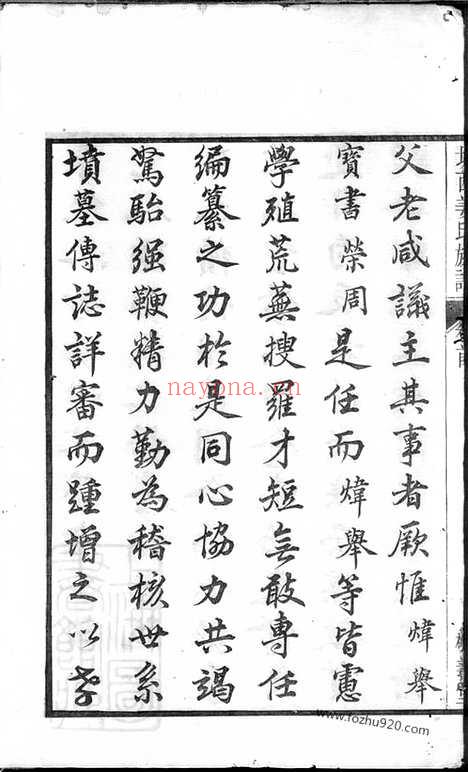 父老咸議主其事者厥惟煒舉
寶書榮周是任而煒舉等皆慮
學殖荒蕪搜羅才短無敢專任
編纂之功於是同心協力共竭
駑駘强鞭精力勤為稽核世系
墳墓傳誌詳審而踵增之以孝
nayona.vn
www.fozhu920.com